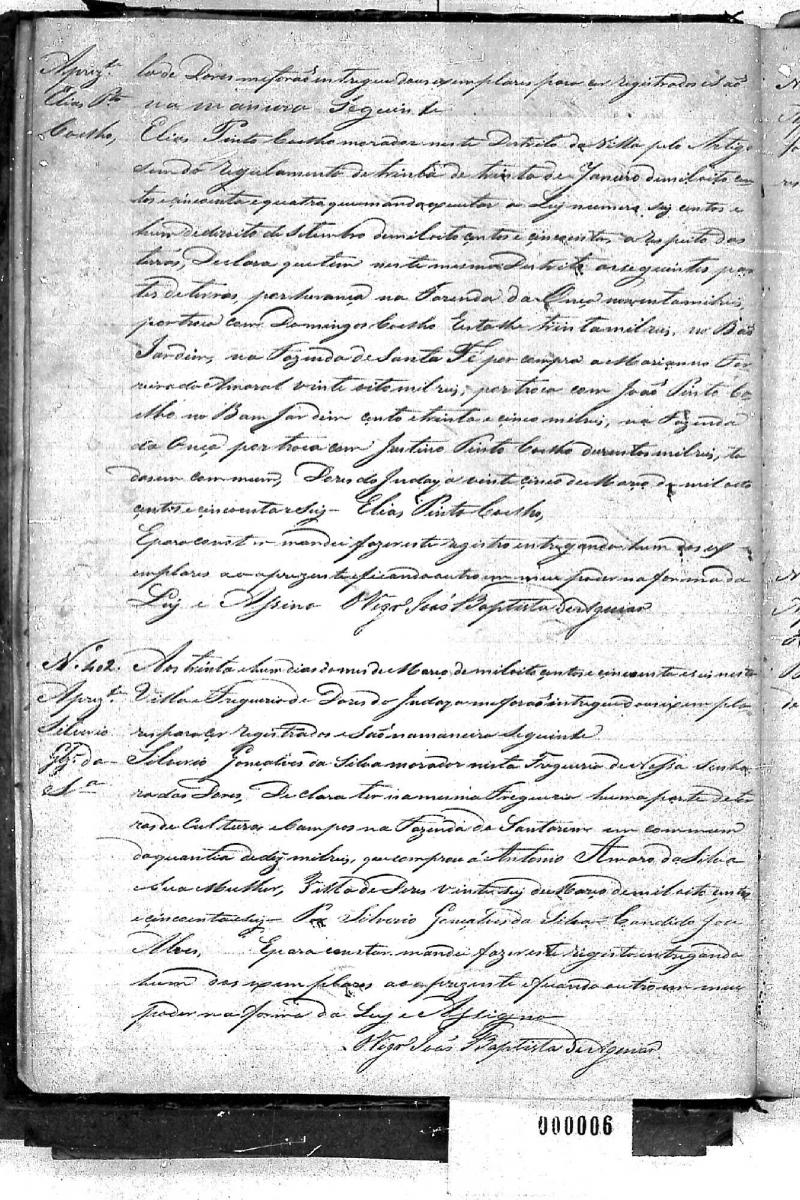 Aprez.te
Elias P.to
Coelho,
la de Dores me forão entregue dous exemplares para ser registrados e são
na maneira Seguinte
Elias Pinto Coelho morador neste Destrito da Villa pelo Artigo
do regulamento de trinta de Janeiro de mil oito cen
tos e cincoenta e quatro que manda executar a Ley numero seis centos e
hum de dizoito de Setembro de mil oito centos e cincoenta, a respeito das
terras, Declara que tem neste mesmo Destrito as seguintes par
tes de terras, por herança na Fazenda da Onça noventa mil reis,
por troca com Domingos Coelho trinta mil reis, no Bom
Jardim, na Fazenda de Santa Fé por compra a Marianno Fer
reira do Amaral vinte oito mil reis, por troca com João Pinto Co
elho no Bom Jardim cento e trinta e cinco mil reis, na Fazenda
da Onça por troca com Justino Pinto Coelho duzentos mil reis, to
das em commum, Dores do Indaya vinte cinco de Março de mil oito
centos e cincoenta e seis - Elias Pinto Coelho,
E para constar mandei fazer este registro entregando hum dos ex
emplares ao aprezente e ficando outro em meu poder na forma da
Ley e Assino O Vigr.o João Baptista de Aguiar
N.o 402.
Aprez.te
Silverio
Glz. da
S.a
Aos trinta e hum dias do mes de Março de mil oito centos e cincoenta e seis nesta
Villa e Freguezia de Dores do Indaya me forão entregue dous exempla
res para ser registrados e São na maneira Seguinte
Silverio Gonçalves da Silva morador nesta Freguezia de Nossa Senho
ra das Dores, Declara ter na mesma Freguezia huma parte de ter
ras de Cultura e Campos na Fazenda de Santarem em commum
da quantia de dez mil reis, que comprou á Antonio Amaro da Silva
e sua Mulher, Villa de Dores vinte seis de Março de mil oito centos
e cincoenta e seis - Por Silverio Gonçalves da Silva - Candido José
Alves, E para constar mandei fazer este registo entregando
hum dos exemplares ao aprezente e ficando outro em meu
poder na forma da Ley e Assigno
O Vigr.o João Baptista de Aguiar
000006